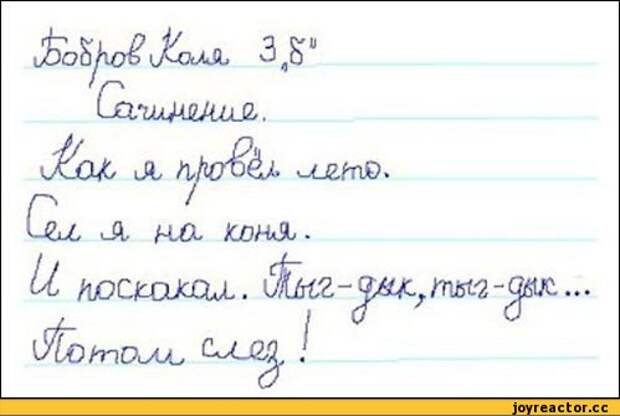 Бобров Коля 3 „б"
Сачинение.
Как я провёл лето.
Сел я на коня.
И поскакал. Тыг-дык, тыг-дык...
Потом слез!
joyreactor.cc